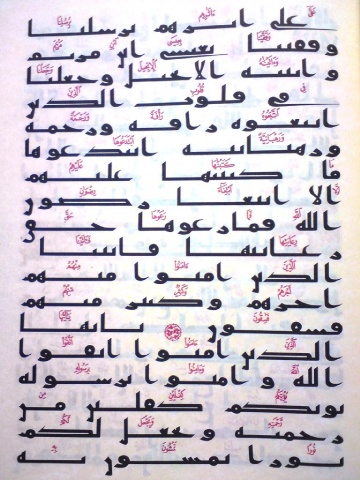 على اثرهم برسلنا
وقفينا بعيسى ابن مريم
واتينه الانجيل وجعلنا
في قلوب الذين
اتبعوه رافة ورحمة
ورهبانية ابتدعوها
ما كتبنها عليهم
الا ابتغا رضون
الله فما رعوها حق
رعايتها فاتينا
الذين امنوا منهم
اجرهم وكثير منهم
فسقون يايها
الذين امنوا اتقوا
الله وامنوا برسوله
يوتكم كفلين من
رحمته ويجعل لكم
نورا تمشون به